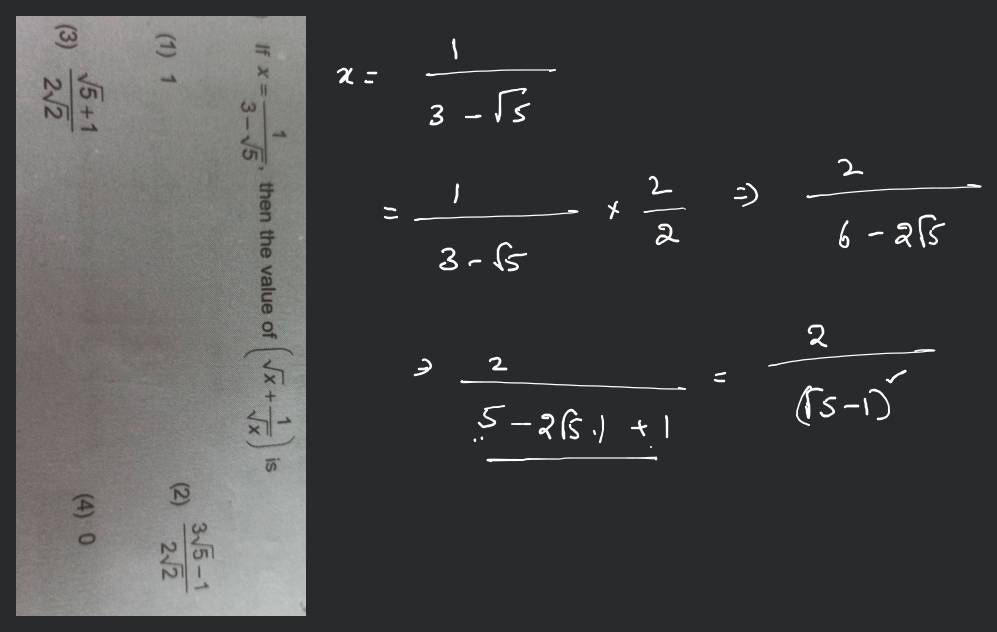 If x = 1/(3−√5), then the value of (√x + 1/√x) is
(1) 1
(2) (3√5−1)/(2√2)
(3) (√5+1)/(2√2)
(4) 0
x = 1/(3 − √5)
= 1/(3 − √5) × 2/2 ⇒ 2/(6 − 2√5)
⇒ 2/(5 − 2√5.1 + 1) = 2/(√5−1)²